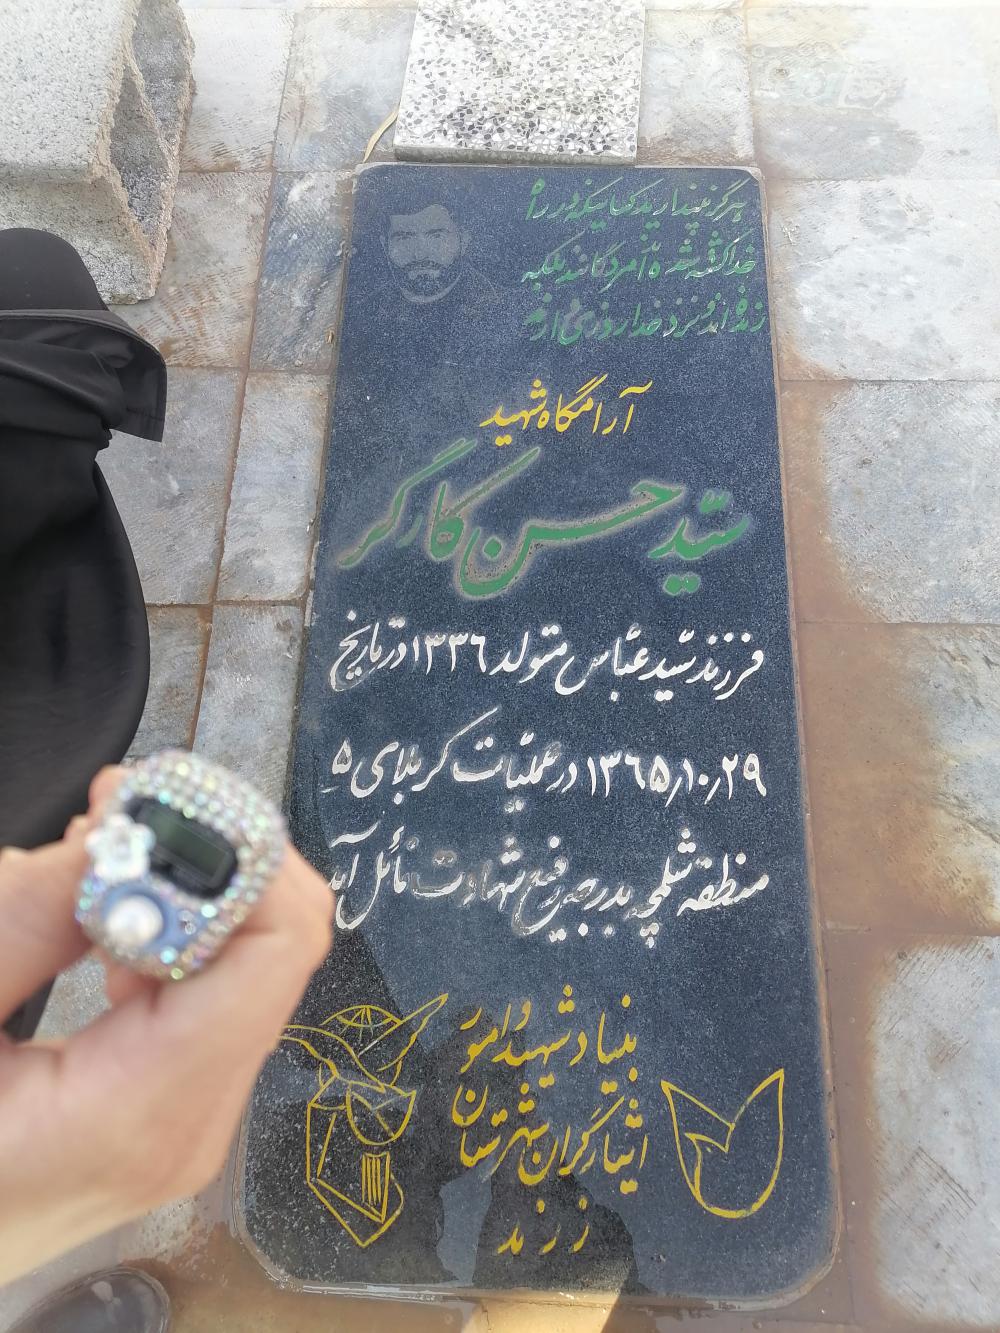 هرگز نپندارید کسانیکه در راه
خدا کشته شده اند مردگانند بلکه
زنده اند و نزد خدا روزی
آرامگاه شهید
سیّد حسن کارگر
فرزند سیّد عبّاس متولد ۱۳۳۶ در تاریخ
۱۳۶۵/۱۰/۲۹ در عملیّات کربلای ۵
منطقه شلمچه بدرجه رفیع شهادت نائل آمد
بنیاد شهید و امور
ایثارگران شهرستان
زرند